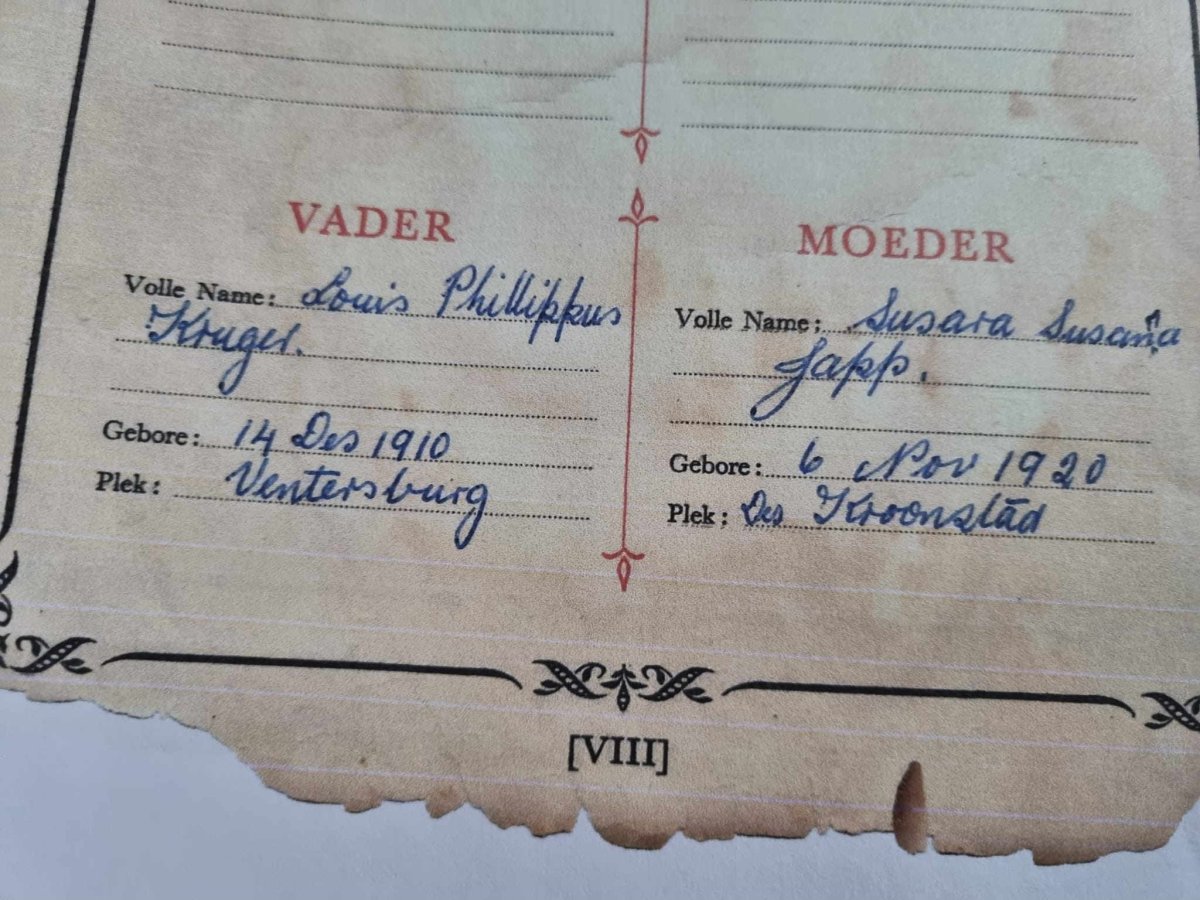 VADER
Volle Name: Louis Phillippus
Kruger.
Gebore: 14 Des 1910
Plek: Ventersburg
MOEDER
Volle Name: Susara Susanna
Japp.
Gebore: 6 Nov 1920
Plek: Des Kroonstad
[VIII]